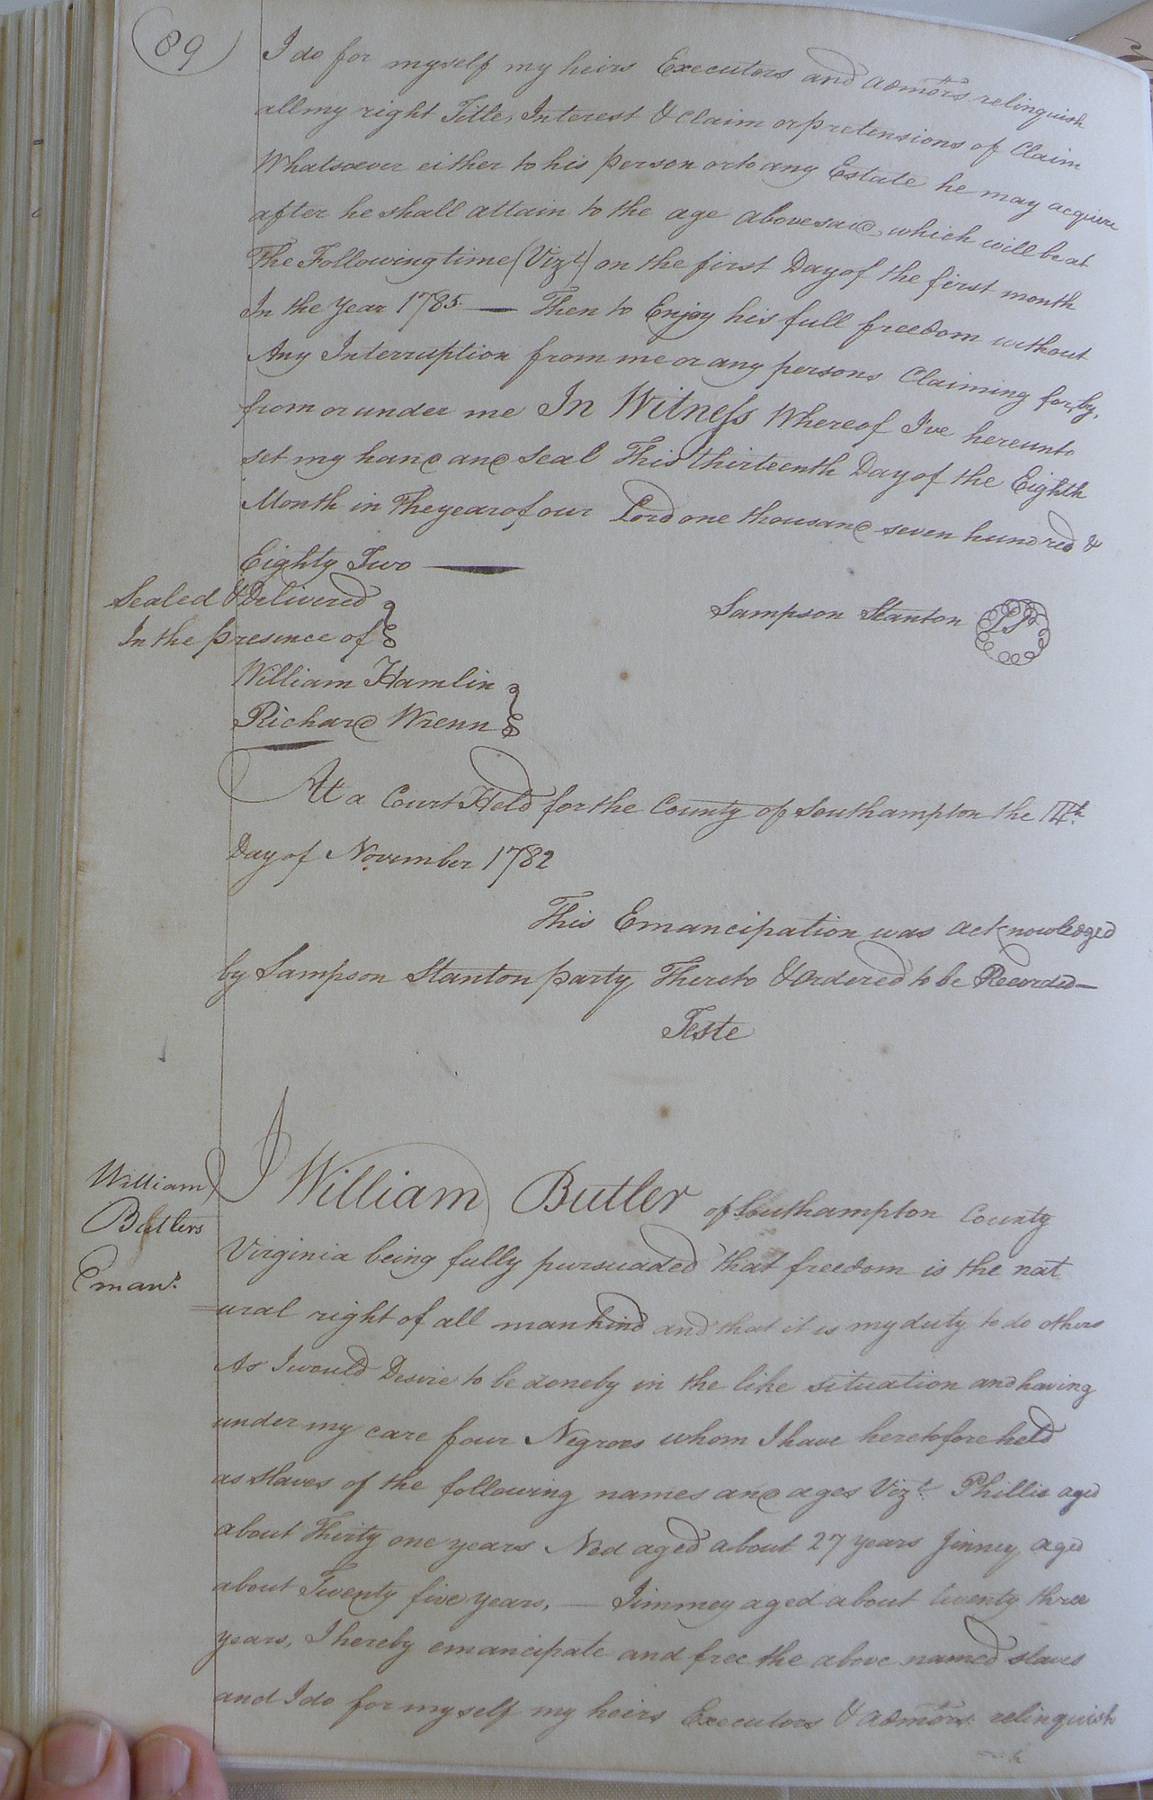 89
I do for myself my heirs Executors and admors relinquish
all my right Title, Interest & Claim or pretensions of Claim
Whatsoever either to his person or to any Estate he may acquire
after he shall attain to the age abovesaid, which will be at
The Following time (Vizt) on the first Day of the first month
In the Year 1785 — Then to Enjoy his full freedom without
Any Interruption from me or any persons Claiming for, by,
from or under me In Witness Whereof I've hereunto
set my hand and Seal This thirteenth Day of the Eighth
Month in The year of our Lord one thousand seven hundred &
Eighty Two —
Sealed & Delivered
In the presence of
Sampson Stanton
William Hamlin
Richard Wrenn
At a Court Held for the County of Southampton the 14th
Day of November 1782
This Emancipation was acknowledged
by Sampson Stanton party Thereto & Ordered to be Recorded—
Teste
William
Butlers
Eman.
I William Butler of Southampton County
Virginia being fully pursuaded that freedom is the nat
=ural right of all mankind and that it is my duty to do others
As I would Desire to be done by in the like situation and having
under my care four Negroes whom I have heretofore held
as slaves of the following names and ages Vizt Phillis aged
about Thirty one years Ned aged about 27 years Jinney aged
about Twenty five years, — Jimmey aged about twenty three
years, I hereby emancipate and free the above named slaves
and I do for myself my heirs Executors & admors. relinquish